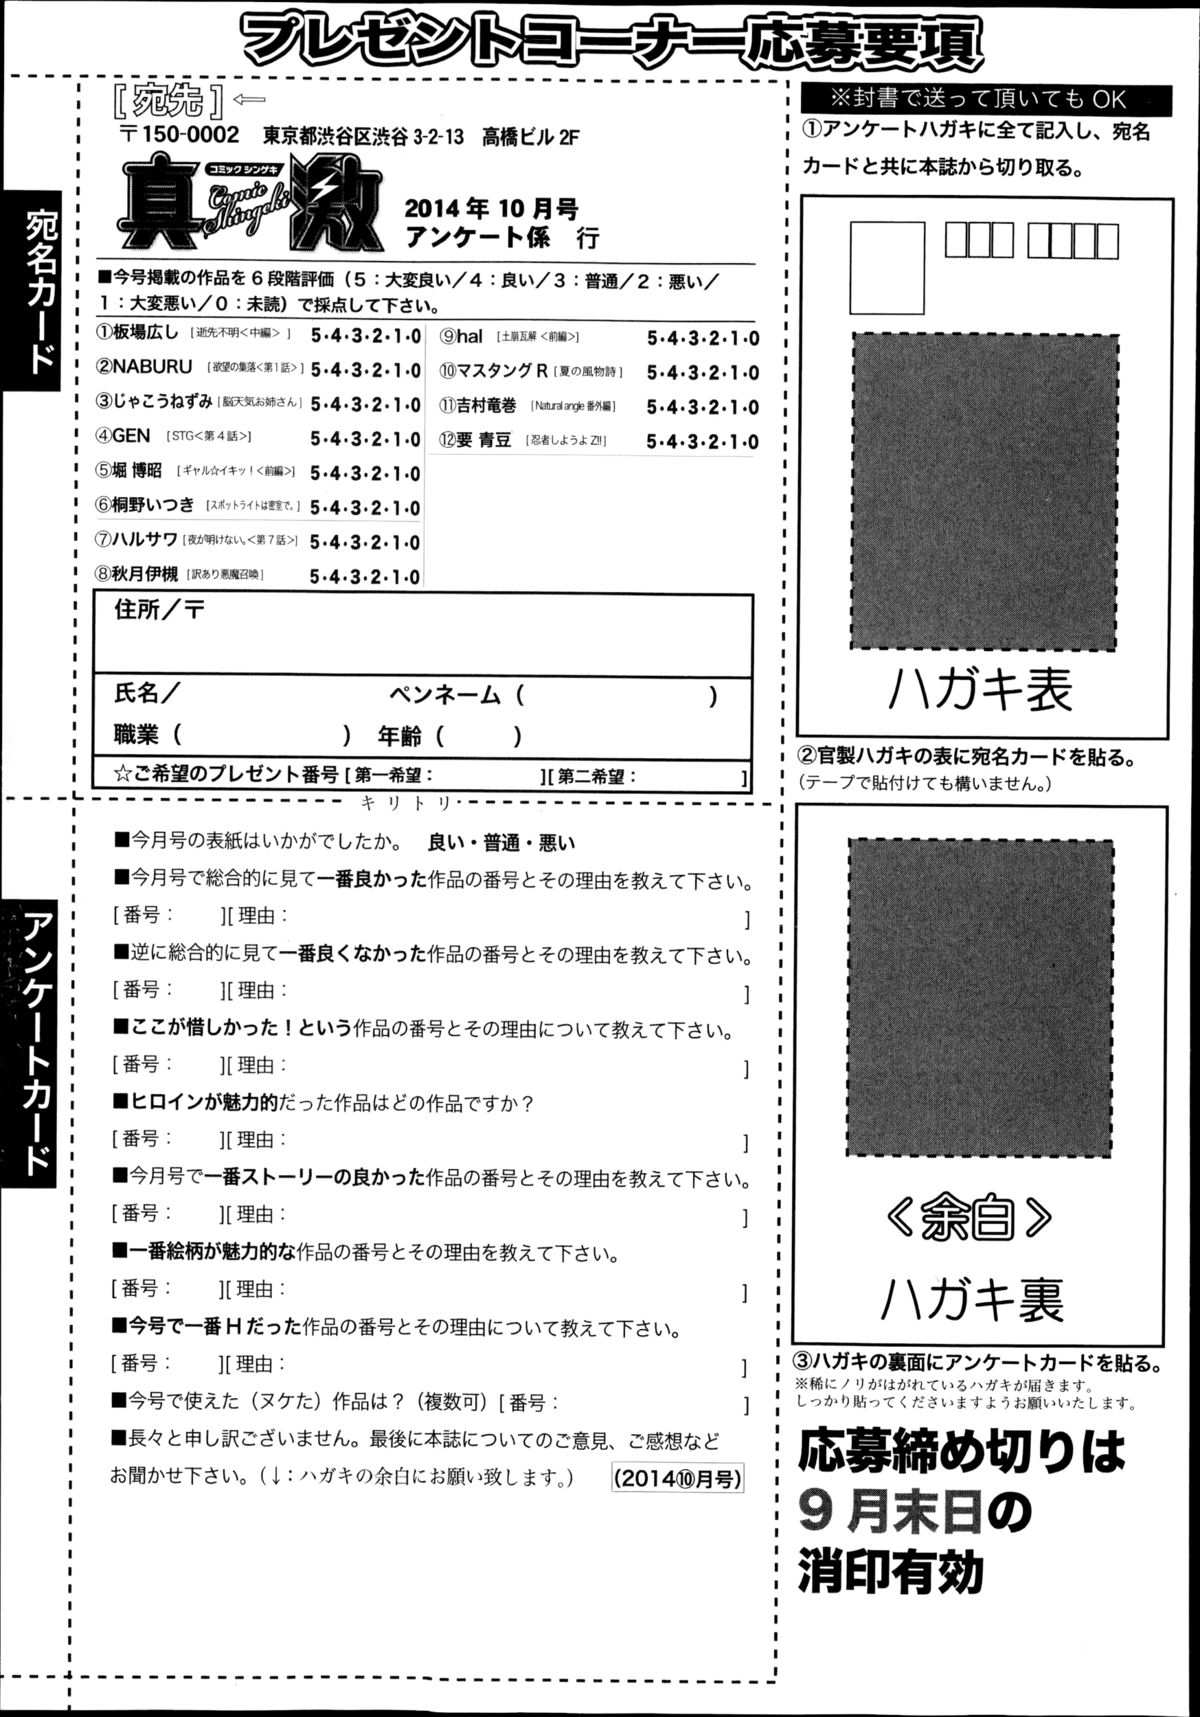 プレゼントコーナー応募要項
宛名カード
[宛先]⇦
〒150-0002　東京都渋谷区渋谷 3-2-13　高橋ビル 2F
真激
コミック シンゲキ
Comic Shingeki
2014 年 10 月号
アンケート係　行
■今号掲載の作品を 6 段階評価（5：大変良い／4：良い／3：普通／2：悪い／
1：大変悪い／0：未読）で採点して下さい。
①板場広し［逝先不明<中編>］ 5・4・3・2・1・0
②NABURU［欲望の集落<第1話>］ 5・4・3・2・1・0
③じゃこうねずみ［脳天気お姉さん］ 5・4・3・2・1・0
④GEN［STG<第4話>］ 5・4・3・2・1・0
⑤堀 博昭［ギャル☆イキッ！<前編>］ 5・4・3・2・1・0
⑥桐野いつき［スポットライトは密室で。］ 5・4・3・2・1・0
⑦ハルサワ［夜が明けない。<第7話>］ 5・4・3・2・1・0
⑧秋月伊槻［訳あり悪魔召喚］ 5・4・3・2・1・0
⑨hal［土崩瓦解<前編>］ 5・4・3・2・1・0
⑩マスタングR［夏の風物詩］ 5・4・3・2・1・0
⑪吉村竜巻［Natural angle 番外編］ 5・4・3・2・1・0
⑫要 青豆［忍者しようよZ!!］ 5・4・3・2・1・0
住所／〒
氏名／　ペンネーム（　）
職業（　）　年齢（　）
☆ご希望のプレゼント番号［第一希望：　］［第二希望：　］
キリトリ
アンケートカード
■今月号の表紙はいかがでしたか。　良い・普通・悪い
■今月号で総合的に見て一番良かった作品の番号とその理由を教えて下さい。
［番号：　］［理由：　］
■逆に総合的に見て一番良くなかった作品の番号とその理由を教えて下さい。
［番号：　］［理由：　］
■ここが惜しかった！という作品の番号とその理由について教えて下さい。
［番号：　］［理由：　］
■ヒロインが魅力的だった作品はどの作品ですか？
［番号：　］［理由：　］
■今月号で一番ストーリーの良かった作品の番号とその理由を教えて下さい。
［番号：　］［理由：　］
■一番絵柄が魅力的な作品の番号とその理由を教えて下さい。
［番号：　］［理由：　］
■今号で一番Hだった作品の番号とその理由について教えて下さい。
［番号：　］［理由：　］
■今号で使えた（ヌケた）作品は？（複数可）［番号：　］
■長々と申し訳ございません。最後に本誌についてのご意見、ご感想など
お聞かせ下さい。（↓：ハガキの余白にお願い致します。）　(2014⑩月号)
※封書で送って頂いてもOK
①アンケートハガキに全て記入し、宛名
カードと共に本誌から切り取る。
ハガキ表
②官製ハガキの表に宛名カードを貼る。
（テープで貼付けても構いません。）
＜余白＞
ハガキ裏
③ハガキの裏面にアンケートカードを貼る。
※稀にノリがはがれているハガキが届きます。
しっかり貼ってくださいますようお願いいたします。
応募締め切りは
9 月末日の
消印有効